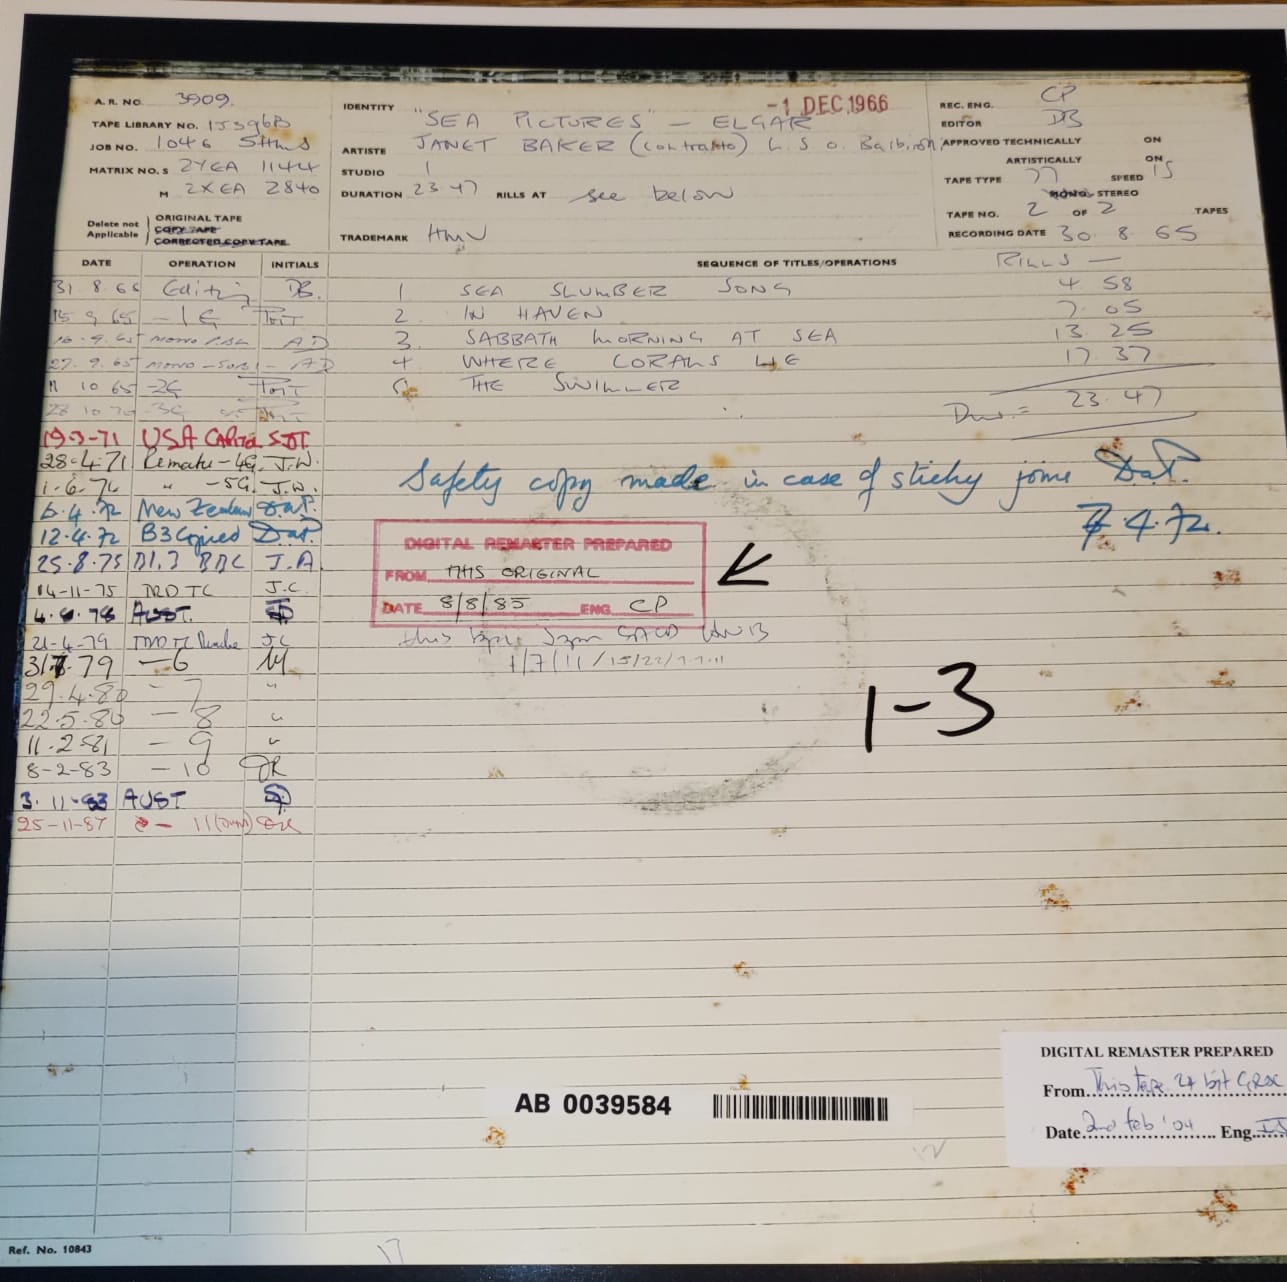 A. R. NO. 3909.
TAPE LIBRARY NO. 15396B
JOB NO. 1046
MATRIX NO. S 2YEA 1144
M 2XEA 2840
Delete not Applicable
ORIGINAL TAPE
COPY TAPE
CORRECTED COPY TAPE
-1 DEC 1966
IDENTITY "SEA PICTURES" — ELGAR
ARTISTE JANET BAKER (contralto) L. S. O. Barbirolli
STUDIO 1
DURATION 23 47 RILLS AT see below
TRADEMARK HMV
REC. ENG. CP
EDITOR DB
APPROVED TECHNICALLY ON
ARTISTICALLY ON
TAPE TYPE 77 SPEED 15
MONO STEREO
TAPE NO. 2 OF 2 TAPES
RECORDING DATE 30. 8. 65
DATE OPERATION INITIALS
SEQUENCE OF TITLES/OPERATIONS
RILLS —
31. 8. 65 Editing DB.
1 SEA SLUMBER SONG 4. 58
15 9 65 -1G
2. IN HAVEN 7. 05
AD
3. SABBATH MORNING AT SEA 13. 25
27. 9. 65 MONO - AD
4 WHERE CORALS LIE 17. 37
11 10 65 -2G
5 THE SWIMMER
28 10 70 -3G
Dur. = 23. 47
19-3-71 USA CAPITOL
28-4-71 Remake - 4G. J.W.
1. 6. 71 " - 5G. J.W.
Safety copy made in case of sticky joins
6. 4. 72 New Zealand
7 4. 72.
12. 4. 72 B3 Copied
25. 8. 75 BBC J.A
14-11-75 J.C.
AUST.
21-4-79 J.C
31 79 - 6
29. 4. 80 - 7 "
22. 5. 80 - 8 "
11. 2 81 - 9 "
8-2-83 - 10 JR
3. 11-83 AUST
25-11-87 - 11
DIGITAL REMASTER PREPARED
FROM THIS ORIGINAL
DATE 8/8/85 ENG. CP
this tape SACD
1-3
AB 0039584
DIGITAL REMASTER PREPARED
From This tape 24 bit
Date 2nd Feb '04 Eng.
Ref. No. 10843
17